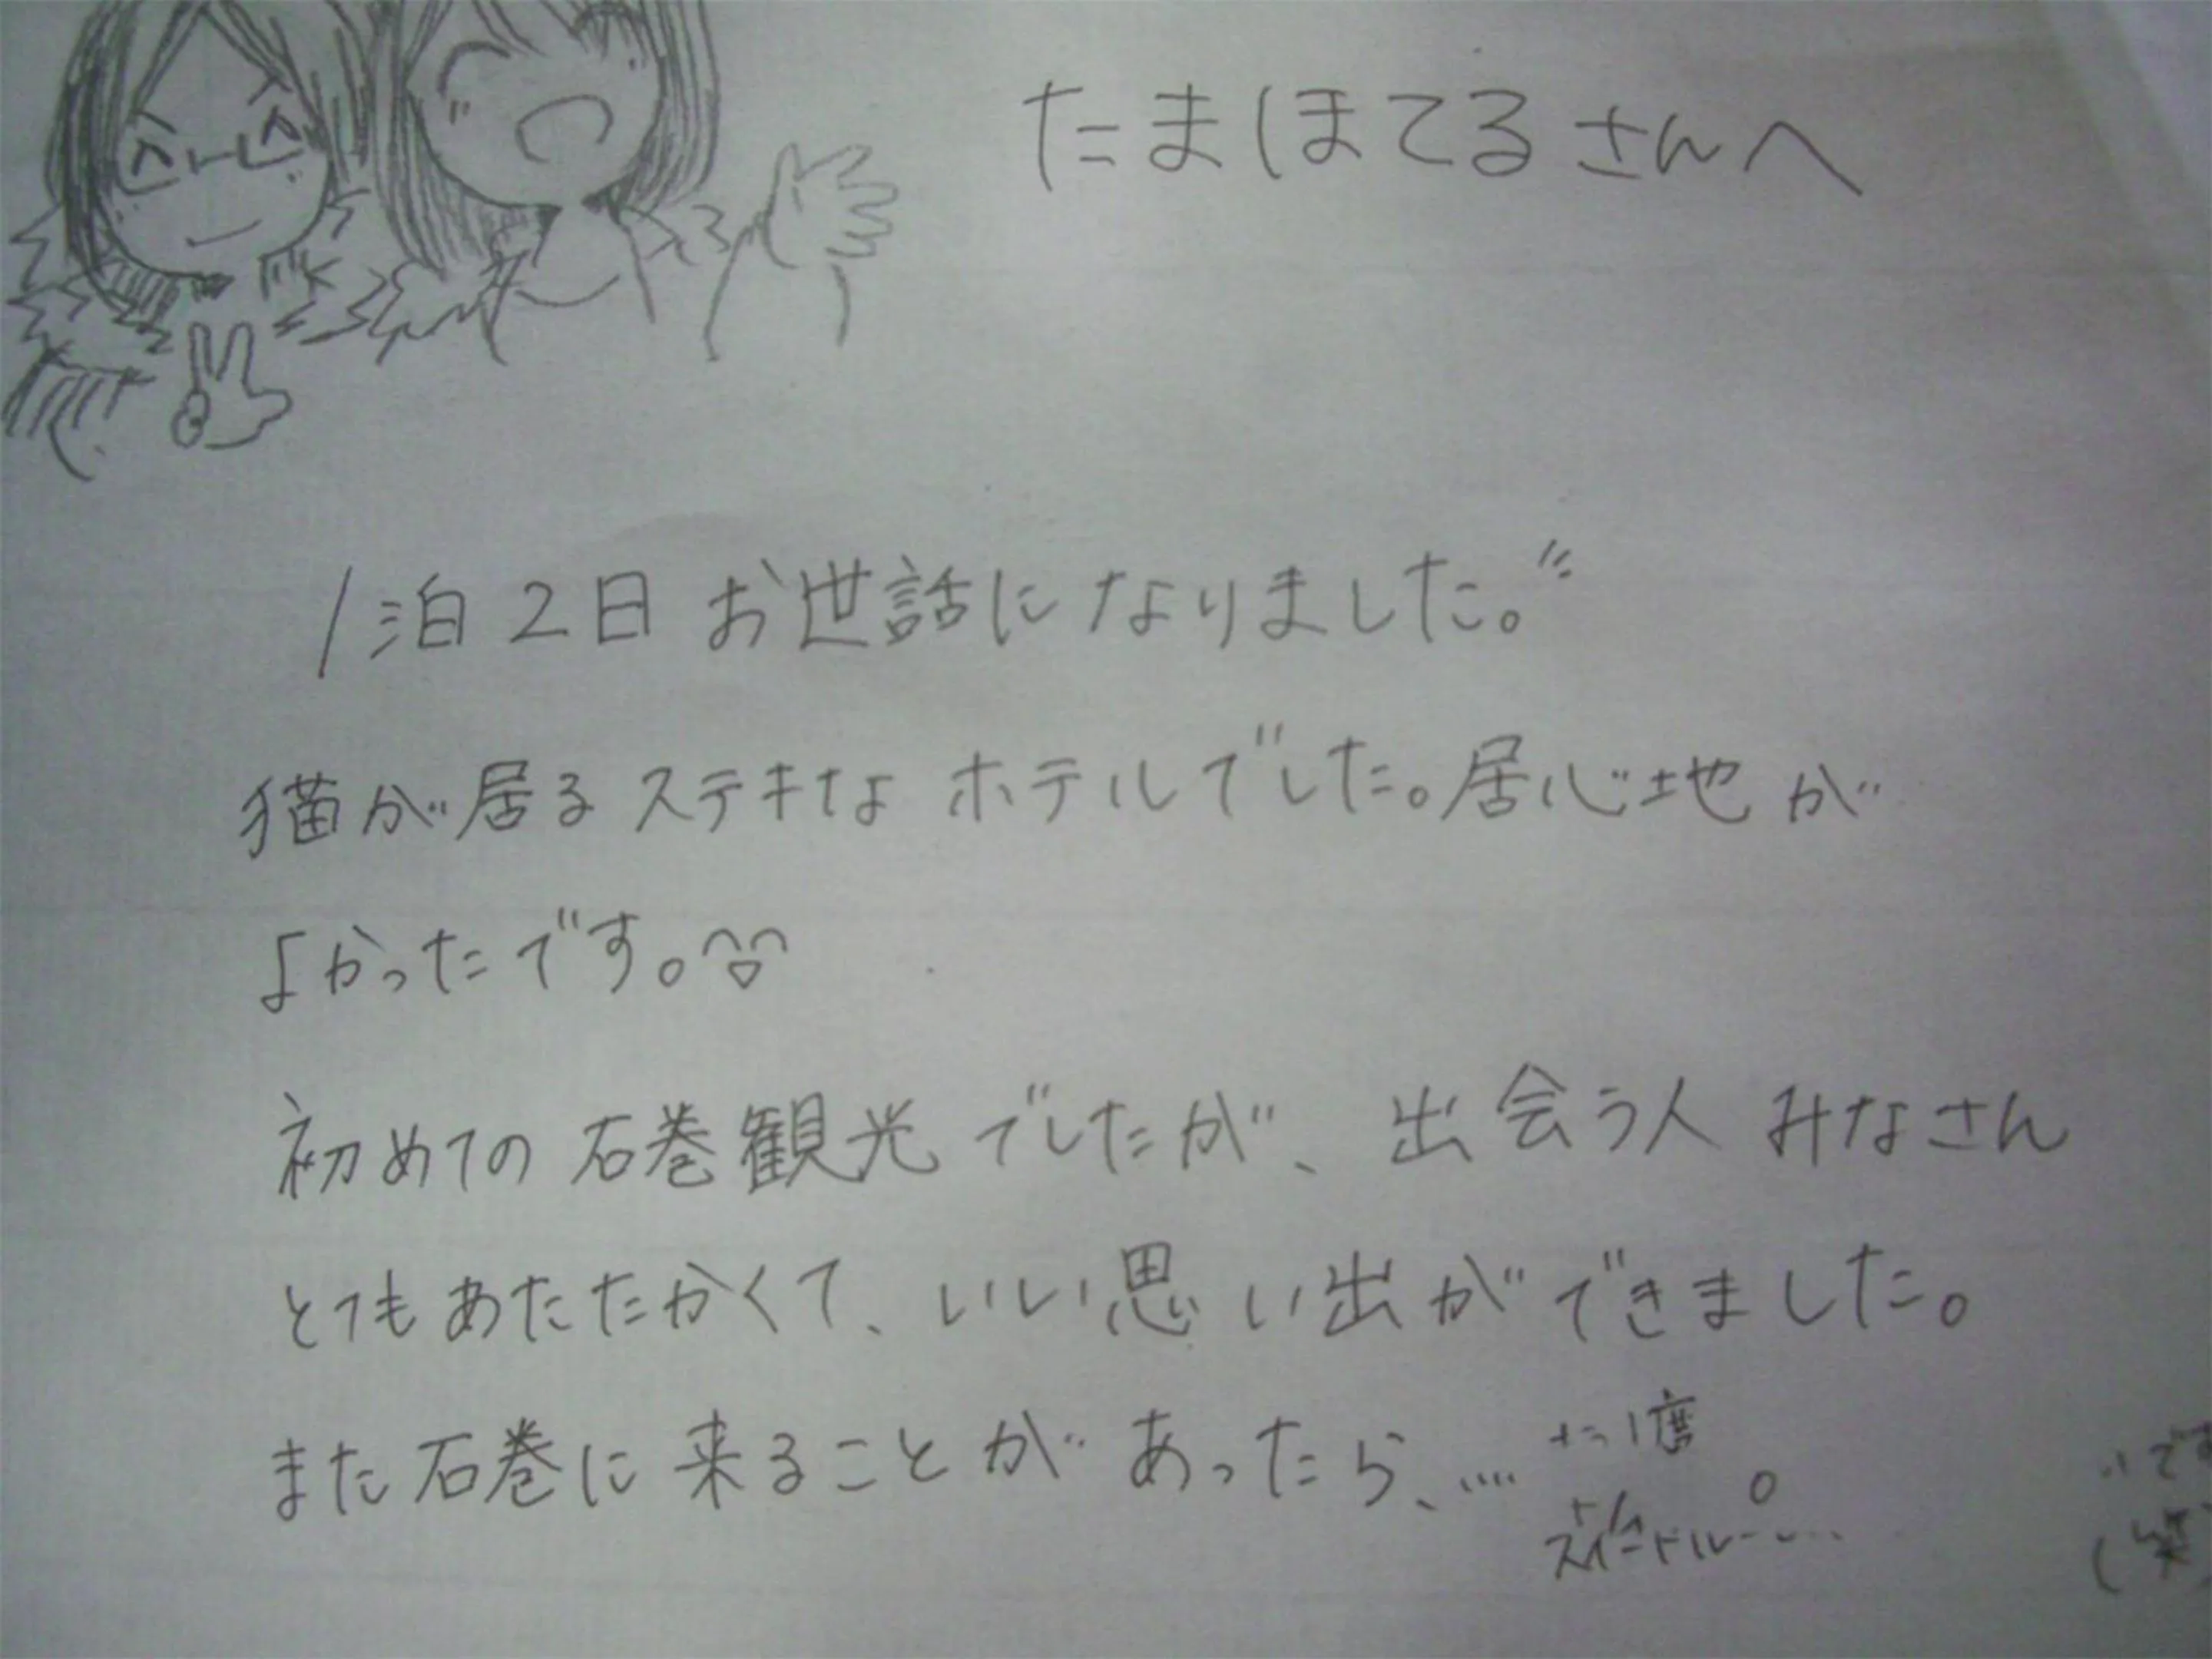 たまほてるさんへ
1泊2日お世話になりました。
猫が居るステキなホテルでした。居心地が
よかったです。
初めての石巻観光でしたが、出会う人みなさん
とてもあたたかくて、いい思い出ができました。
また石巻に来ることがあったら、....
1度
です
(笑)